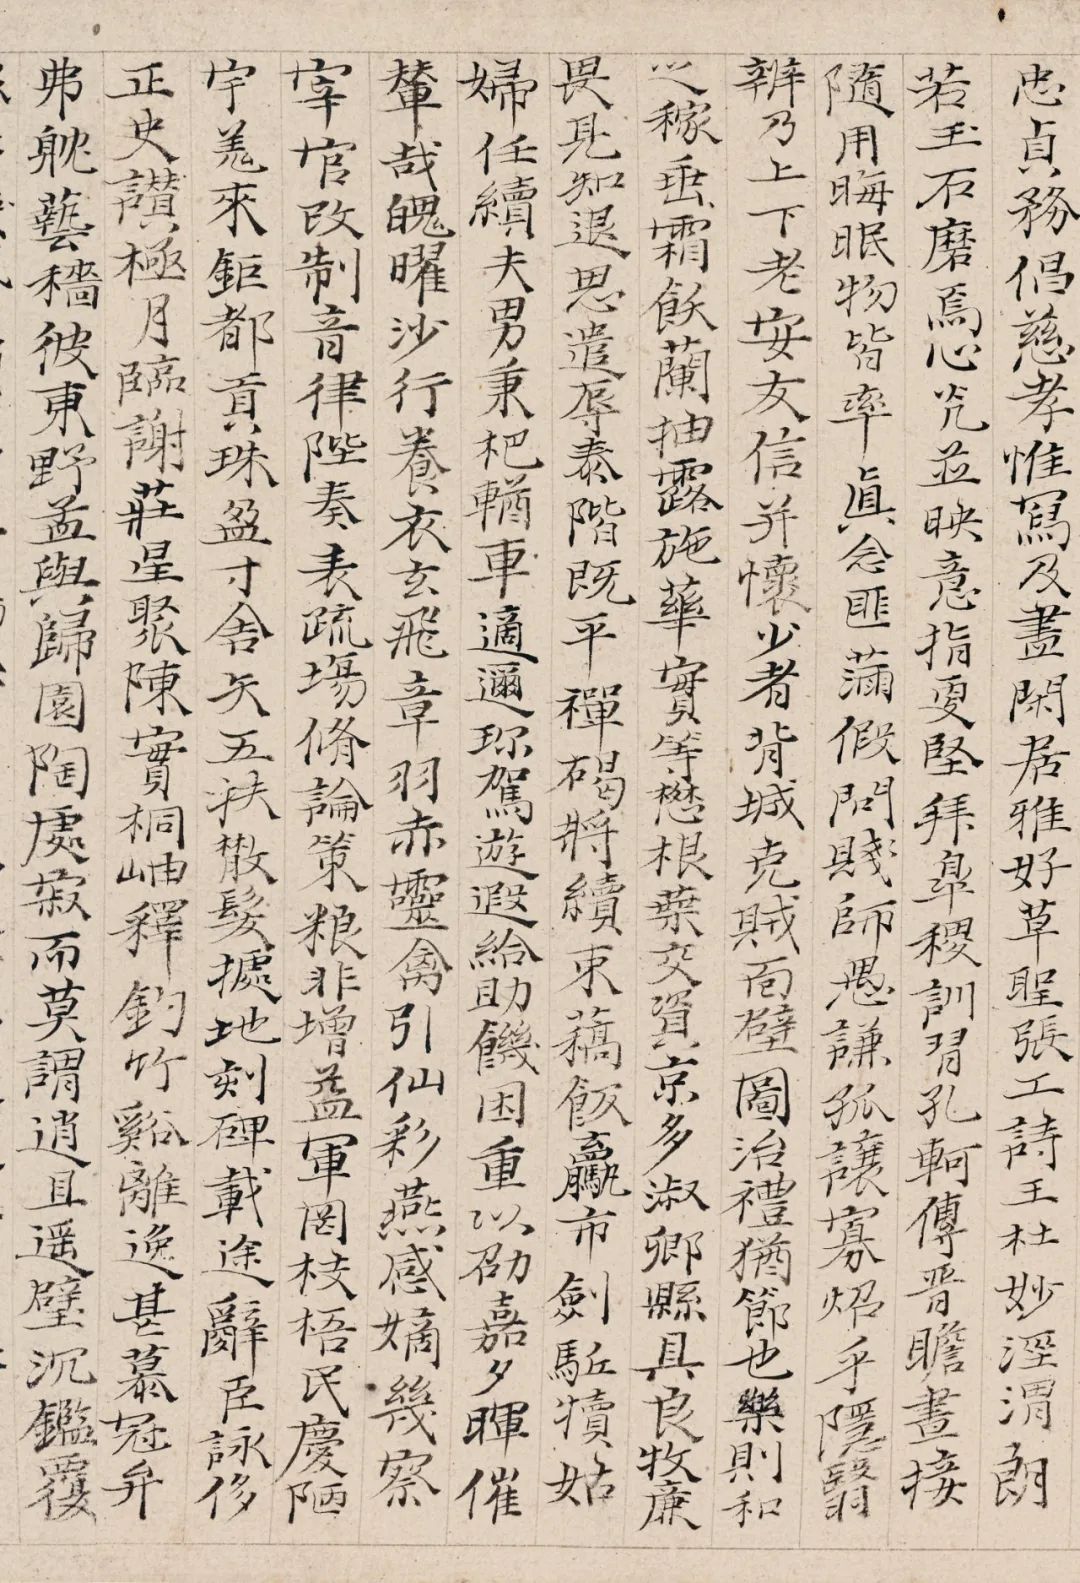 忠貞務倡慈孝惟寫及晝閑居雅好草聖張工詩王杜妙涇渭朗
若玉石磨焉心光並映意指叓堅拜皐稷訓習孔軻傳晉瞻晝接
隨用晦眠物皆率眞念匪滿假問賤師愚謙孤讓寡炤乎隱翳
辨乃上下老安友信并懷少者背城克賊面壁圖治禮猶節也樂則和
之稼垂霜飫蘭抽露施華實等懋根葉交資京多淑卿縣具良牧廉
畏見知退思遣辱泰階既平禪碣將續束藁飯羸市劍駈犢姑
婦任續夫男秉杷輶車適邇珎駕遊遐給助饑困重以劭嘉夕暉催
輦哉魄曜沙行養衣玄飛章羽赤靈禽引仙彩燕感嫡幾察
宰官改制音律陛奏表疏塲脩論策粮非增益軍罔枝梧民慶陋
宇羗來鉅都貢珠盈寸舍矢五扶散髮據地刻碑載途辭臣詠侈
正史讃極月臨謝莊星聚陳實桐岫釋釣竹谿離逸甚慕冠弁
弗躭藝穡彼東野孟與歸園陶處寂而莫謂逍且遥璧沉鑑覆